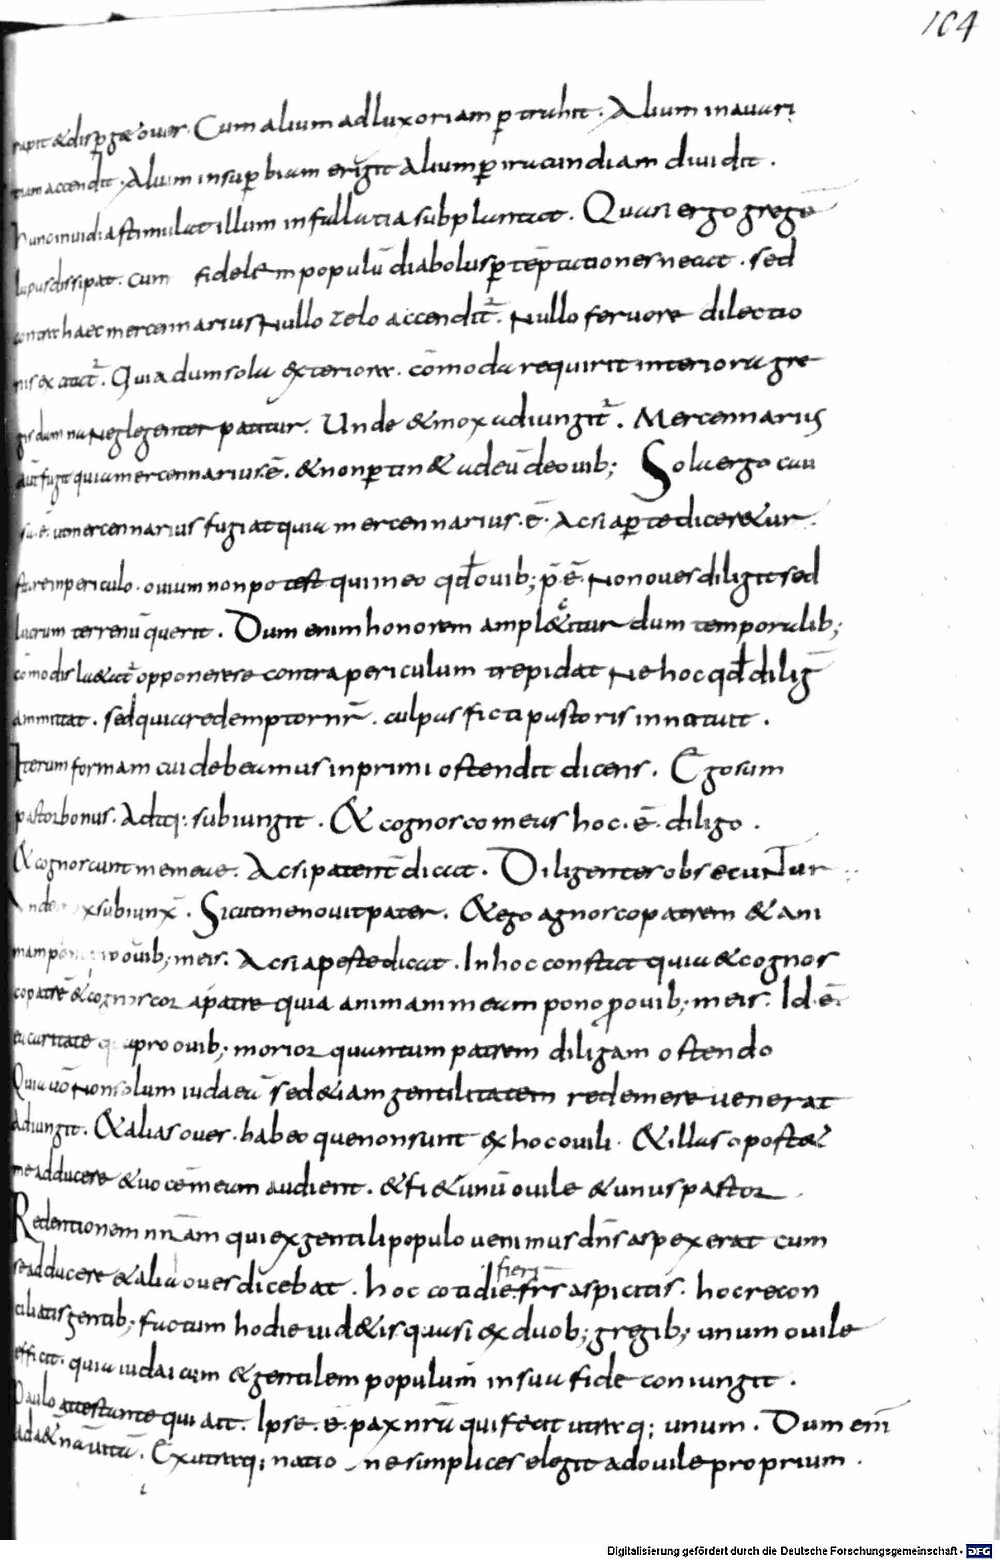 104
rapit & disperg& oues. Cum alium ad luxoriam ꝑtrahit. Alium in auari
tiam accendit. Alium in suꝑbiam erigit Alium ꝑ iracundiam diuidit.
hunc inuidia stimulat illum in fallatia subplantat. Quasi ergo gregē
lupus dissipat. cum fidelem populū diabolus ꝑ tēptationes necat. sed
contra haec mercennarius Nullo zelo accendit᷑. Nullo feruore dilectio
nis excitat᷑. Quia dum sola exteriore. cōmoda requirit interiora gre
gis damna Neglegenter patitur. Unde & mox adiungit᷑. Mercennarius
aut̄ fugit quia mercennarius.ē. & non ꝑtin& ad eū de ouib; Sola ergo cau
sa.ē. ut mercennarius fugiat quia mercennarius.ē. Ac si aꝑte diceretur.
stare in periculo. ouium non potest qui in eo qd̄ ouib; p̄.ē. Non oues diligit sed
lucrum terrenū querit. Dum enim honorem ampl&itur dum temporalib;
cōmodis l&at᷑ opponere se contra periculum trepidat Ne hoc qd̄ diligit
ammittat. sed quia redemptor nr̄. culpas ficti pastoris innotuit.
Iterum formam cui debeamus inprimi ostendit dicens. Ego sum
pastor bonus. Adq; subiungit. & cognosco meas hoc.ē. diligo.
& cognoscunt me meae. Ac si patent̄ dicat. Diligentes obsecuntur
subiunx̄. Sicut me nouit pater. & ego agnosco patrem & ani
mam pono ouib; meis. Ac si apeste dicat. In hoc constat quia & cognos
co patrē & cognoscor a patre quia animam meam pono ꝓ ouib; meis. Id.ē.
ea caritate qua pro ouib; morior quantum patrem diligam ostendo
Quia uō Non solum iudaeā sed & iam gentilitatem redemere uenerat
Adiungit. & alias oues. habeo que non sunt ex hoc ouili. & illas oport&
me adducere & uocē meam audient. & fi& unū ouile & unus pastor
Redentionem nr̄am qui ex gentili populo uenimus dn̄s aspexerat cum
se adducere & alia oues dicebat. hoc cotidie fieri frs̄ aspicitis. hoc recon
ciliatis gentib; factum hodie uid&is quasi ex duob; gregib; unum ouile
efficit. quia iudaicum & gentilem populum in sua fide coniungit.
Paulo attestante qui ait. Ipse.ē. pax nr̄a qui fecit utraq; unum. Dum enī
ad &nā uitā. Ex utraq; natione simplices elegit ad ouile proprium.
Digitalisierung gefördert durch die Deutsche Forschungsgemeinschaft - DFG